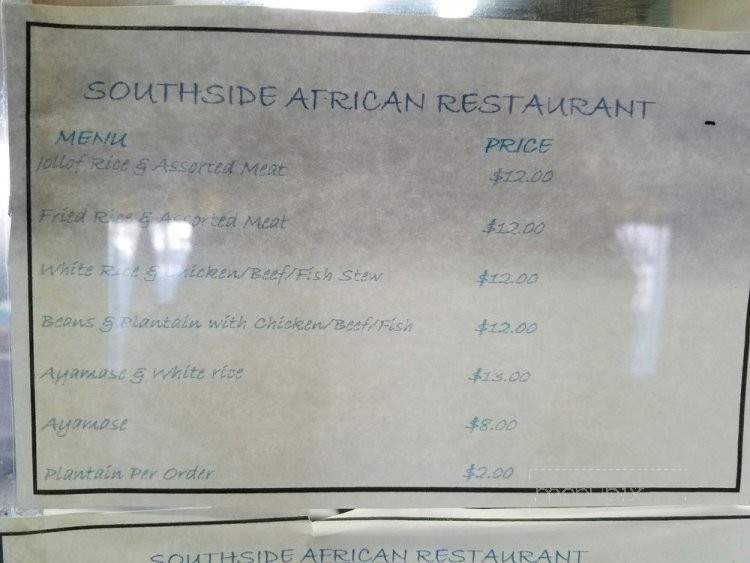 SOUTHSIDE AFRICAN RESTAURANT
MENU PRICE
Jollof Rice & Assorted Meat $12.00
Fried Rice & Assorted Meat $12.00
White Rice & Chicken/Beef/Fish Stew $12.00
Beans & Plantain with Chicken/Beef/Fish $12.00
Ayamase & White rice $13.00
Ayamase $8.00
Plantain Per Order $2.00
menupix
SOUTHSIDE AFRICAN RESTAURANT